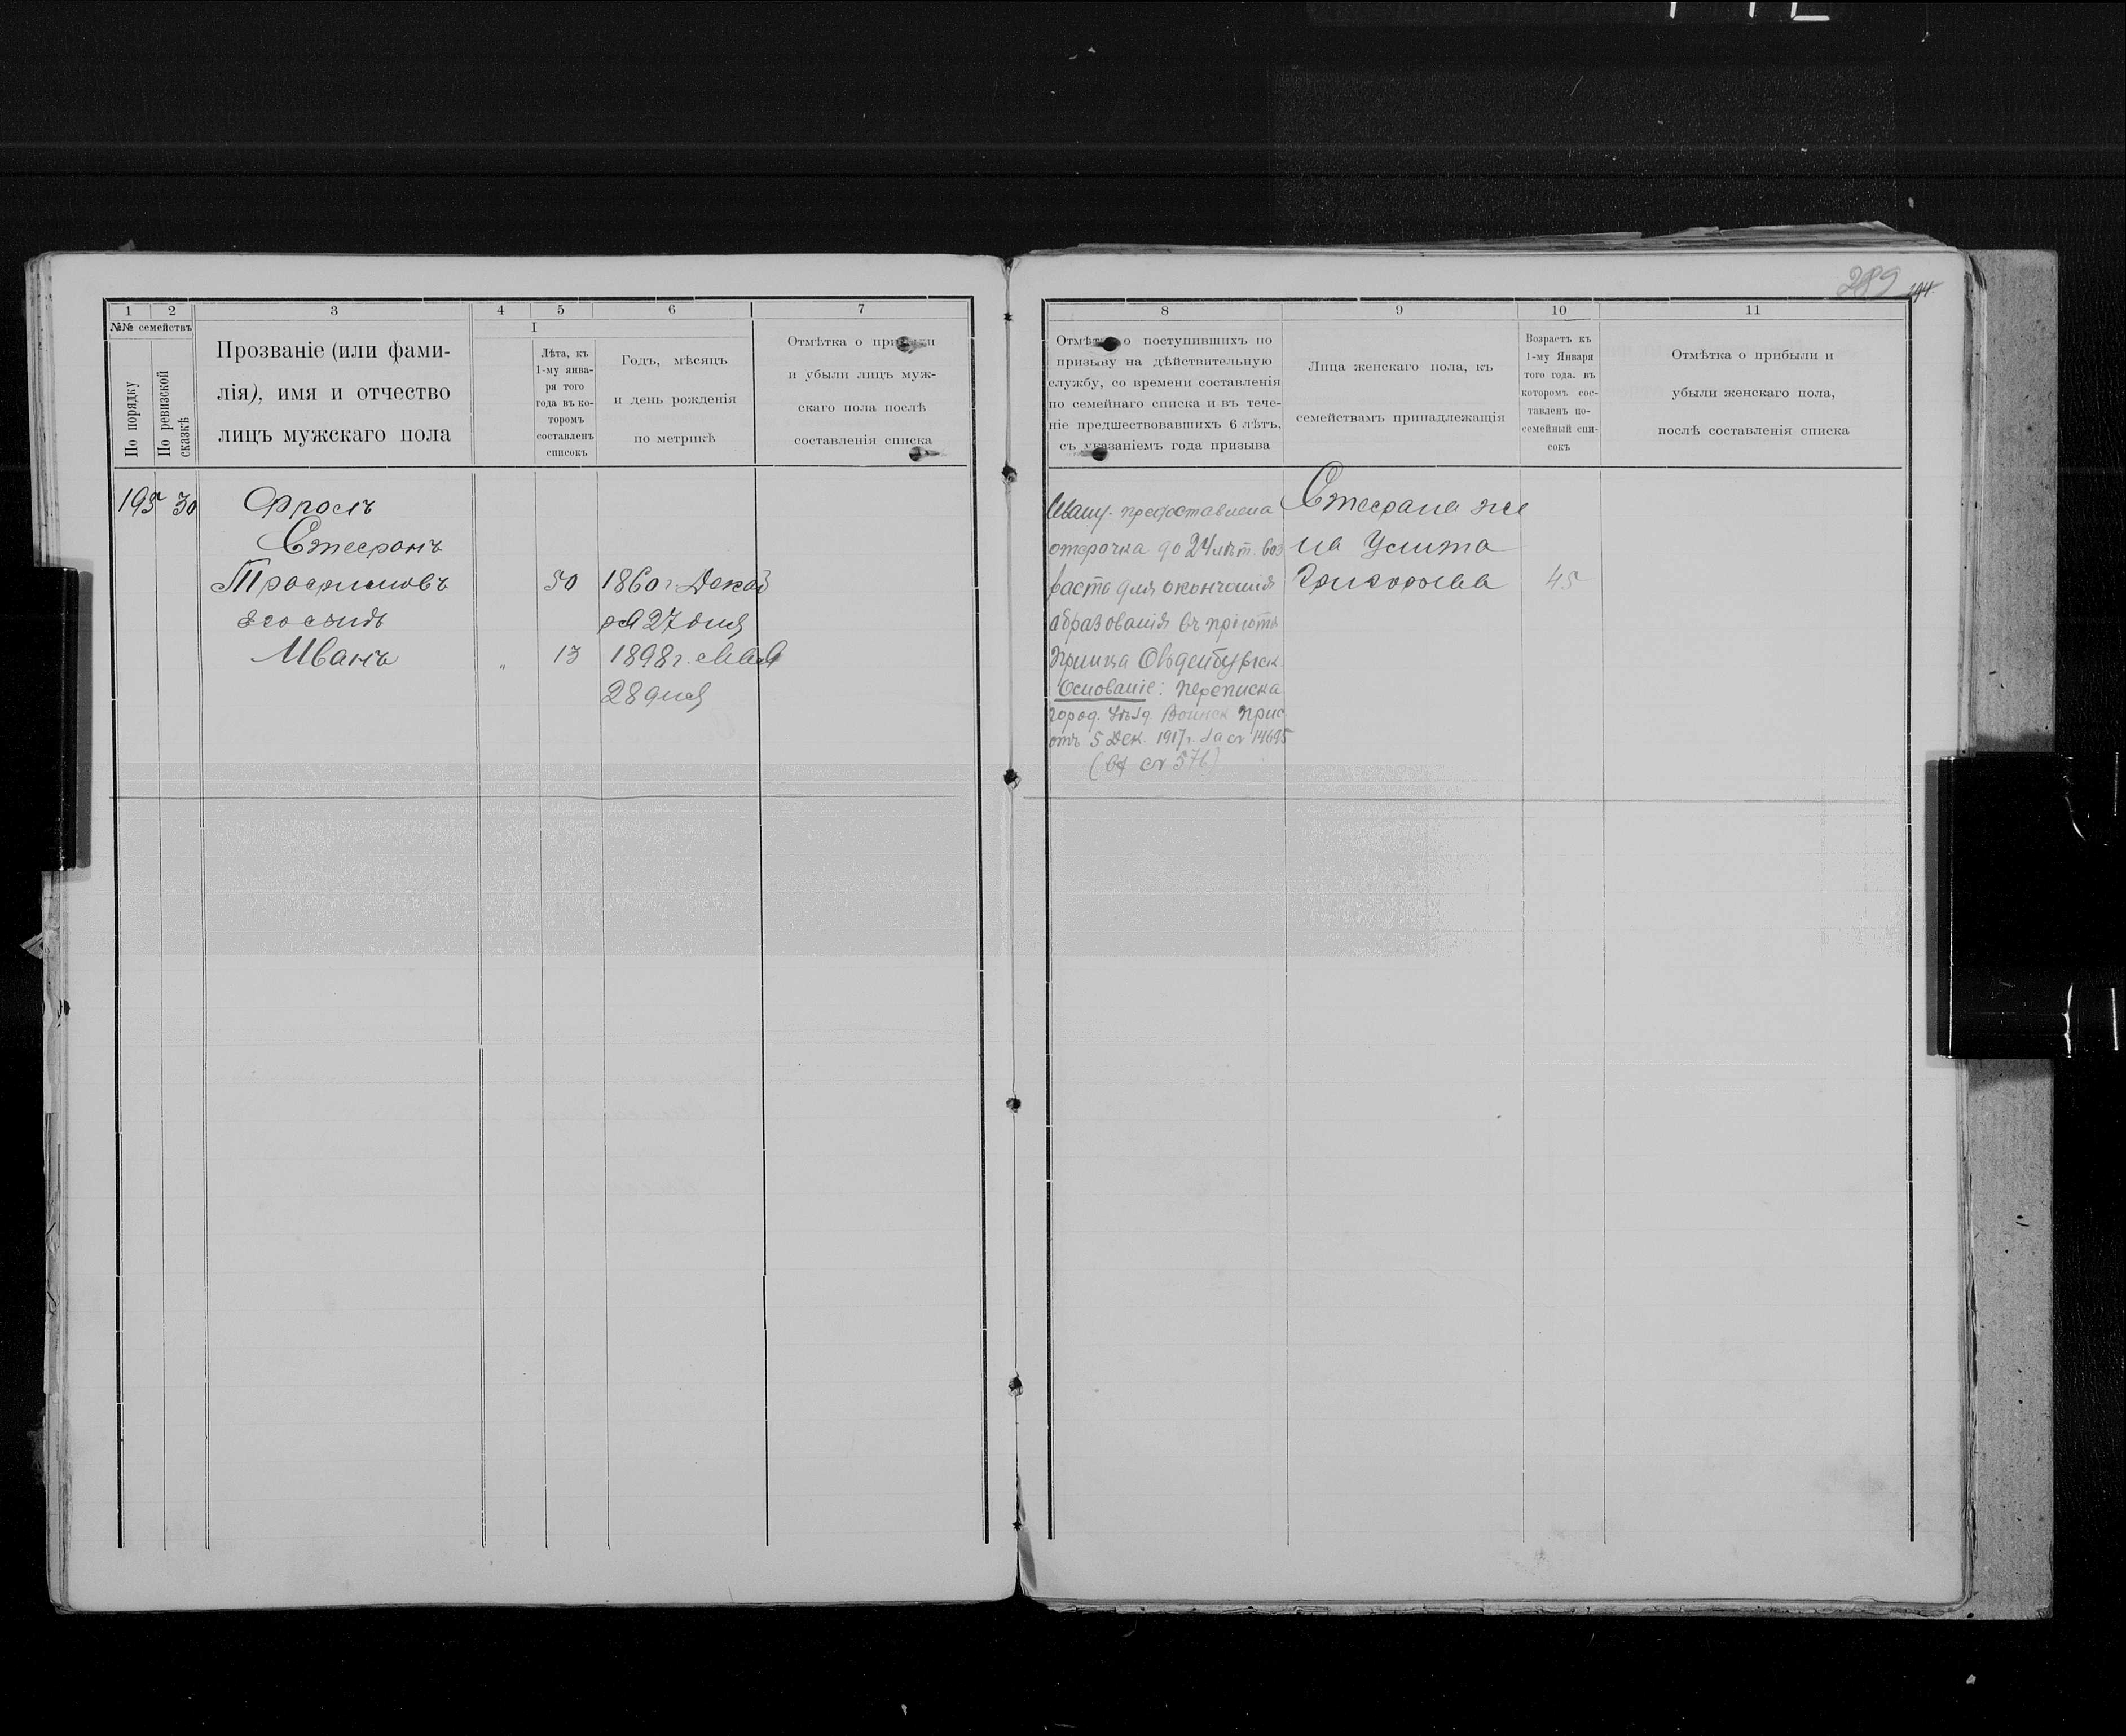 289 194.
1 2 3 4 5 6 7
№№ семействъ
По порядку
По ревизской сказкѣ
Прозваніе (или фами-
лія), имя и отчество
лицъ мужскаго пола
I
Лѣта, къ
1-му янва-
ря того
года въ ко-
торомъ
составленъ
списокъ
Годъ, мѣсяцъ
и день рожденія
по метрикѣ
Отмѣтка о прибыли
и убыли лицъ муж-
скаго пола послѣ
составленія списка
195 30 Фролъ
Стефанъ
Трофимовъ 50 1860 г. Декаб
ря 27 дня
его сынъ
Иванъ „ 13 1898 г. Мая
28 дня
8 9 10 11
Отмѣтка о поступившихъ по
призыву на дѣйствительную
службу, со времени составленія
по семейнаго списка и въ тече-
ніе предшествовавшихъ 6 лѣтъ,
съ указаніемъ года призыва
Лица женскаго пола, къ
семействамъ принадлежащія
Возрастъ къ
1-му Января
того года. въ
которомъ сос-
тавленъ по-
семейный спи-
сокъ
Отмѣтка о прибыли и
убыли женскаго пола,
послѣ составленія списка
Ивану предоставлена
отсрочка до 24 лѣт. воз
раста для окончанія
образованія въ пріютѣ
Принца Ольденбургск.
Основаніе: переписка
город. Уѣзд. Воинск. Прис
отъ 5 Дек. 1917 г. за № 14695
Стефана же
на Улита
Григорьева 45